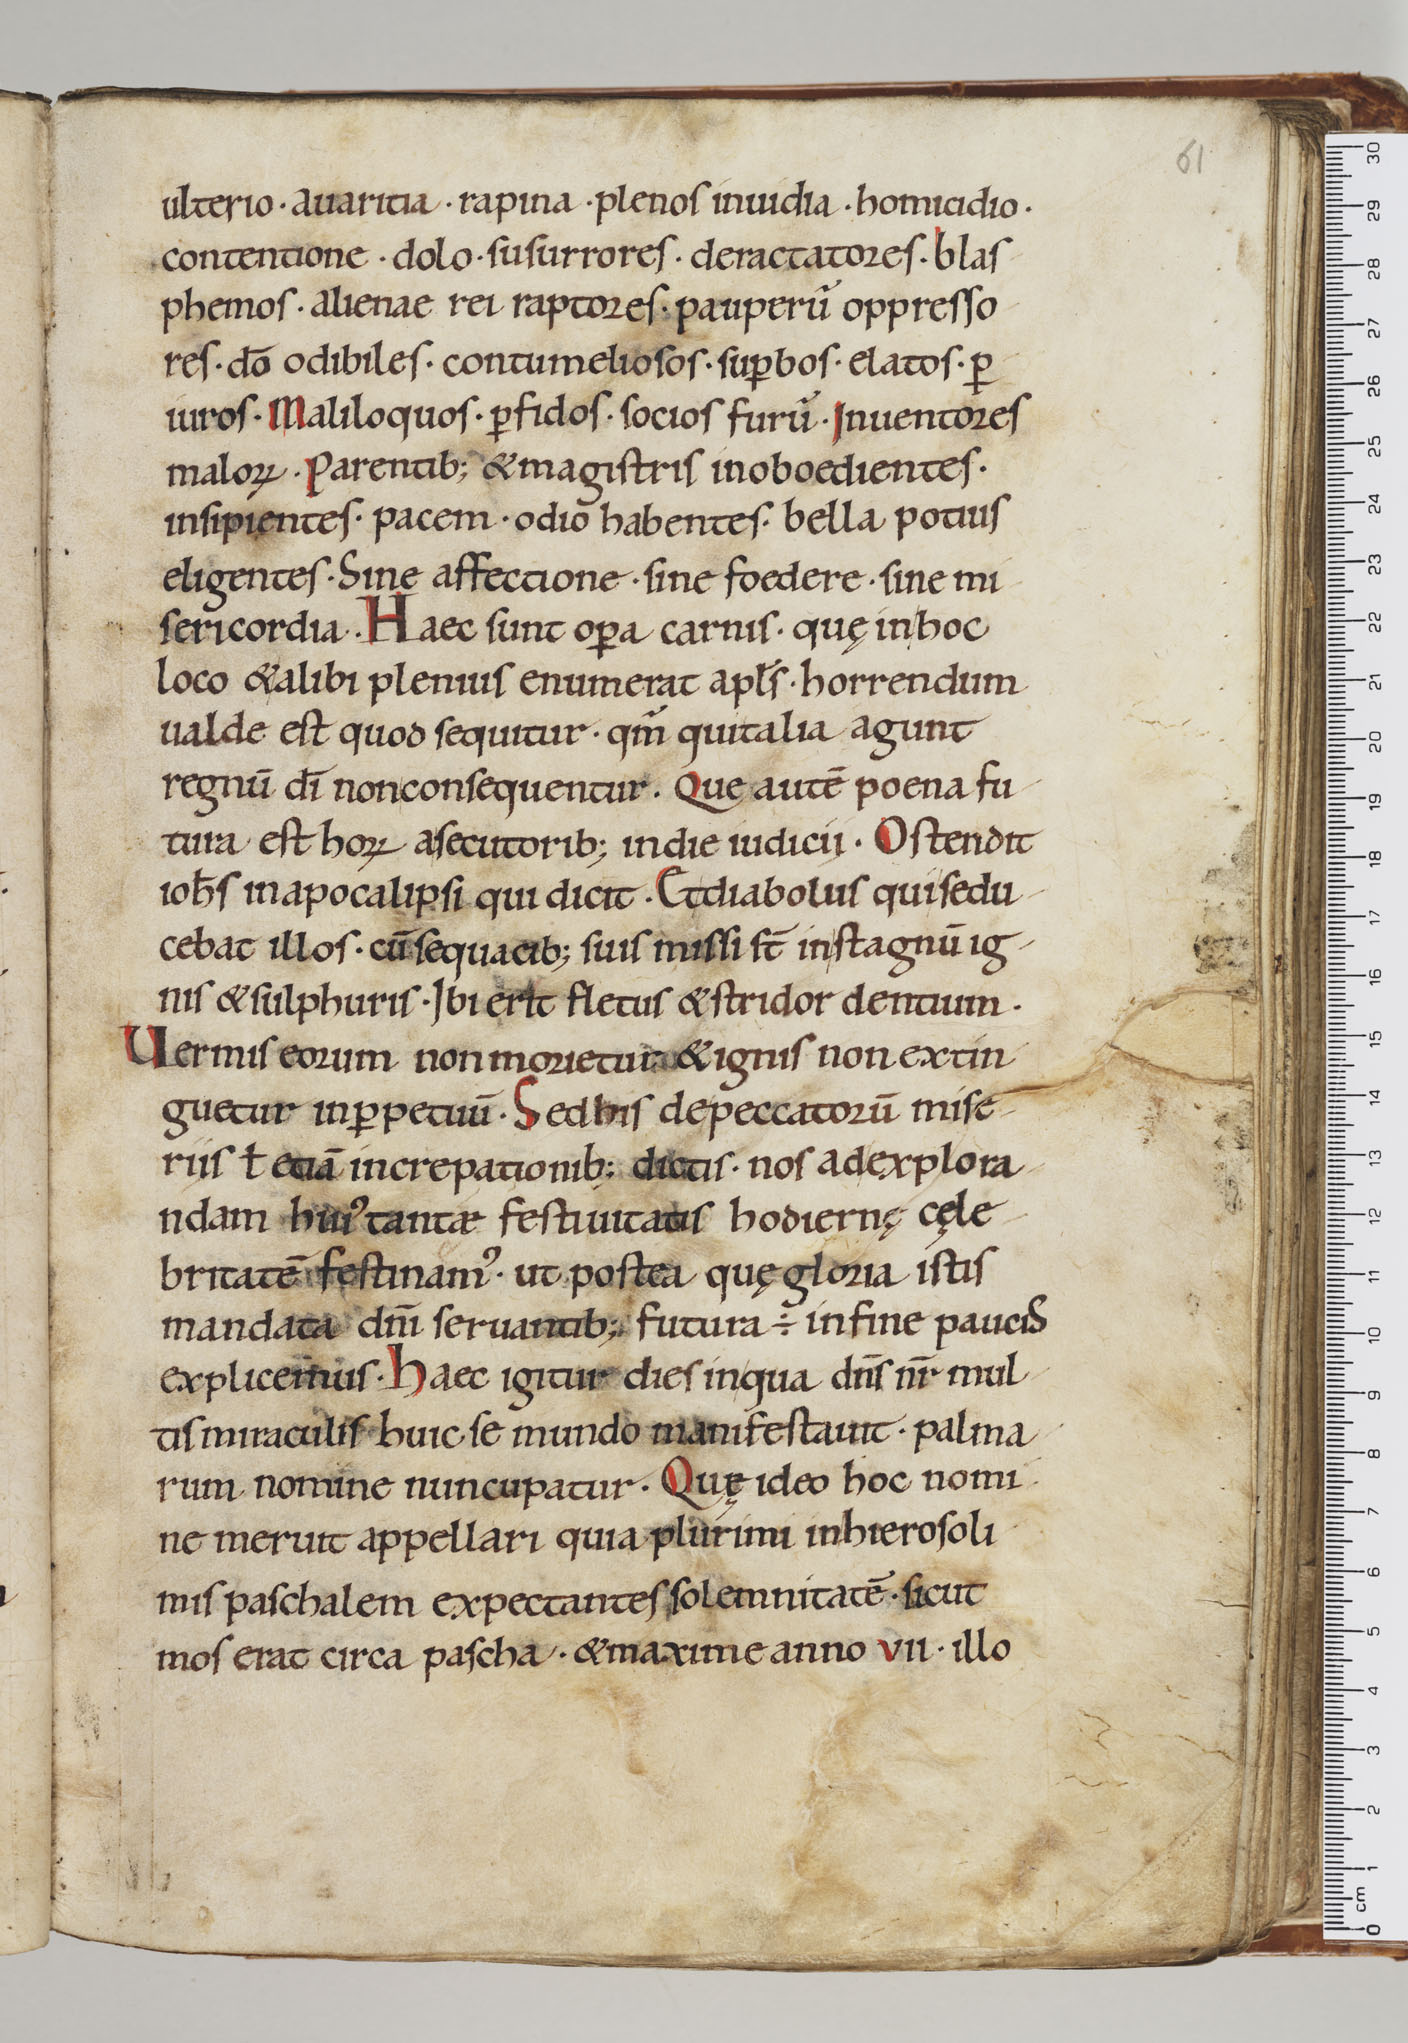 61
ulterio · auaritia · rapina · plenos inuidia · homicidio ·
contentione · dolo · susurrores · deractatores · blas
phemos · alienae rei raptores · pauperū oppresso
res · dō odibiles · contumeliosos · suꝑbos · elatos · ꝑ
iuros · Maliloquos · ꝑfidos · socios furū · Inuentores
maloꝝ · Parentib; &magistris inoboedientes ·
insipientes · pacem · odio habentes · bella potius
eligentes · Sine affectione · sine foedere · sine mi
sericordia · Haec sunt oꝑa carnis · quę inhoc
loco &alibi plenius enumerat apl̄s · horrendum
ualde est quod sequitur · qm̄ quitalia agunt
regnū dī nonconsequentur . Que autē poena fu
tura est hoꝝ asecutorib; indie iudicii . Ostendit
ioh̄s inapocalipsi qui dicit . Etdiabolus quisedu
cebat illos · cū sequacib; suis missi st̄ instagnū ig
nis &sulphuris · Ibi erit fletus &stridor dentium .
Uermis eorum non morietur &ignis non extin
guetur inꝑpetuū . Sedhis depeccatorū mise
riis ł etiā increpationib; dictis · nos adexplora
ndam huiꝰ tantæ festiuitatis hodiernę cęle
britatē festinamꝰ · ut postea quę gloria istis
mandata dnī seruantib; futura ÷ infine paucis
explicemus . Haec igitur dies inqua dn̄s nr̄ mul
tis miraculis huic se mundo manifestauit · palma
rum nomine nuncupatur . Quę ideo hoc nomi
ne meruit appellari quia plurimi inhierosoli
mis paschalem expectantes solemnitatē · sicut
mos erat circa pascha · &maxime anno vii · illo